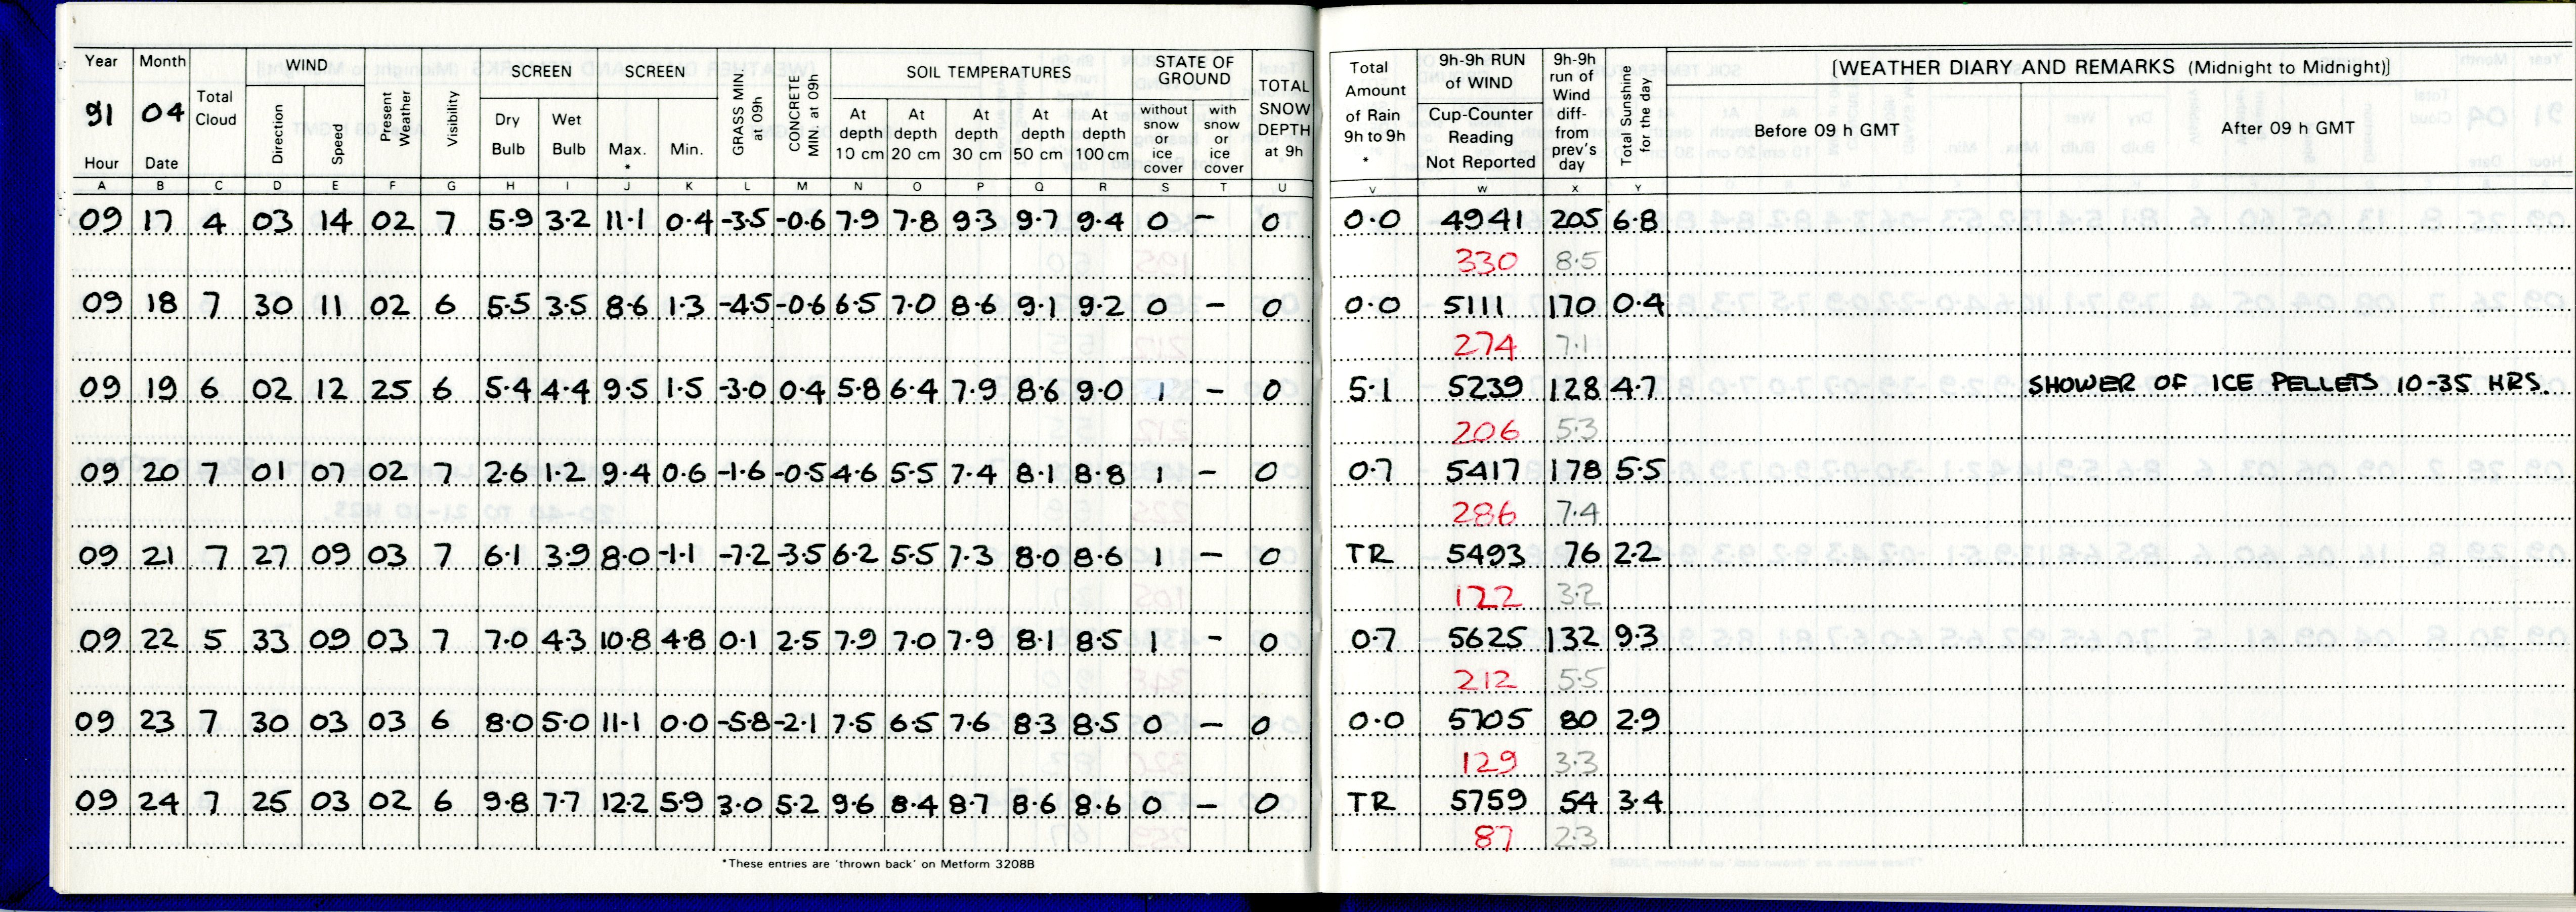 Year Month Total Cloud WIND SCREEN SCREEN GRASS MIN. at 09h CONCRETE MIN. at 09h SOIL TEMPERATURES STATE OF GROUND TOTAL SNOW DEPTH at 9h Total Amount of Rain 9h to 9h * 9h-9h RUN of WIND 9h-9h run of Wind diff- from prev's day Total Sunshine for the day [WEATHER DIARY AND REMARKS (Midnight to Midnight)]
91 04 Direction Speed Present Weather Visibility Dry Bulb Wet Bulb Max. * Min. At depth 10 cm At depth 20 cm At depth 30 cm At depth 50 cm At depth 100 cm without snow or ice cover with snow or ice cover Cup-Counter Reading Not Reported Before 09 h GMT After 09 h GMT
Hour Date
A B C D E F G H I J K L M N O P Q R S T U V W X Y
09 17 4 03 14 02 7 5.9 3.2 11.1 0.4 -3.5 -0.6 7.9 7.8 9.3 9.7 9.4 0 - 0 0.0 4941 205 6.8
330 8.5
09 18 7 30 11 02 6 5.5 3.5 8.6 1.3 -4.5 -0.6 6.5 7.0 8.6 9.1 9.2 0 - 0 0.0 5111 170 0.4
274 7.1
09 19 6 02 12 25 6 5.4 4.4 9.5 1.5 -3.0 0.4 5.8 6.4 7.9 8.6 9.0 1 - 0 5.1 5239 128 4.7 SHOWER OF ICE PELLETS 10-35 HRS.
206 5.3
09 20 7 01 07 02 7 2.6 1.2 9.4 0.6 -1.6 -0.5 4.6 5.5 7.4 8.1 8.8 1 - 0 0.7 5417 178 5.5
286 7.4
09 21 7 27 09 03 7 6.1 3.9 8.0 -1.1 -7.2 -3.5 6.2 5.5 7.3 8.0 8.6 1 - 0 TR 5493 76 2.2
122 3.2
09 22 5 33 09 03 7 7.0 4.3 10.8 4.8 0.1 2.5 7.9 7.0 7.9 8.1 8.5 1 - 0 0.7 5625 132 9.3
212 5.5
09 23 7 30 03 03 6 8.0 5.0 11.1 0.0 -5.8 -2.1 7.5 6.5 7.6 8.3 8.5 0 - 0 0.0 5705 80 2.9
129 3.3
09 24 7 25 03 02 6 9.8 7.7 12.2 5.9 3.0 5.2 9.6 8.4 8.7 8.6 8.6 0 - 0 TR 5759 54 3.4
87 2.3
*These entries are 'thrown back' on Metform 3208B